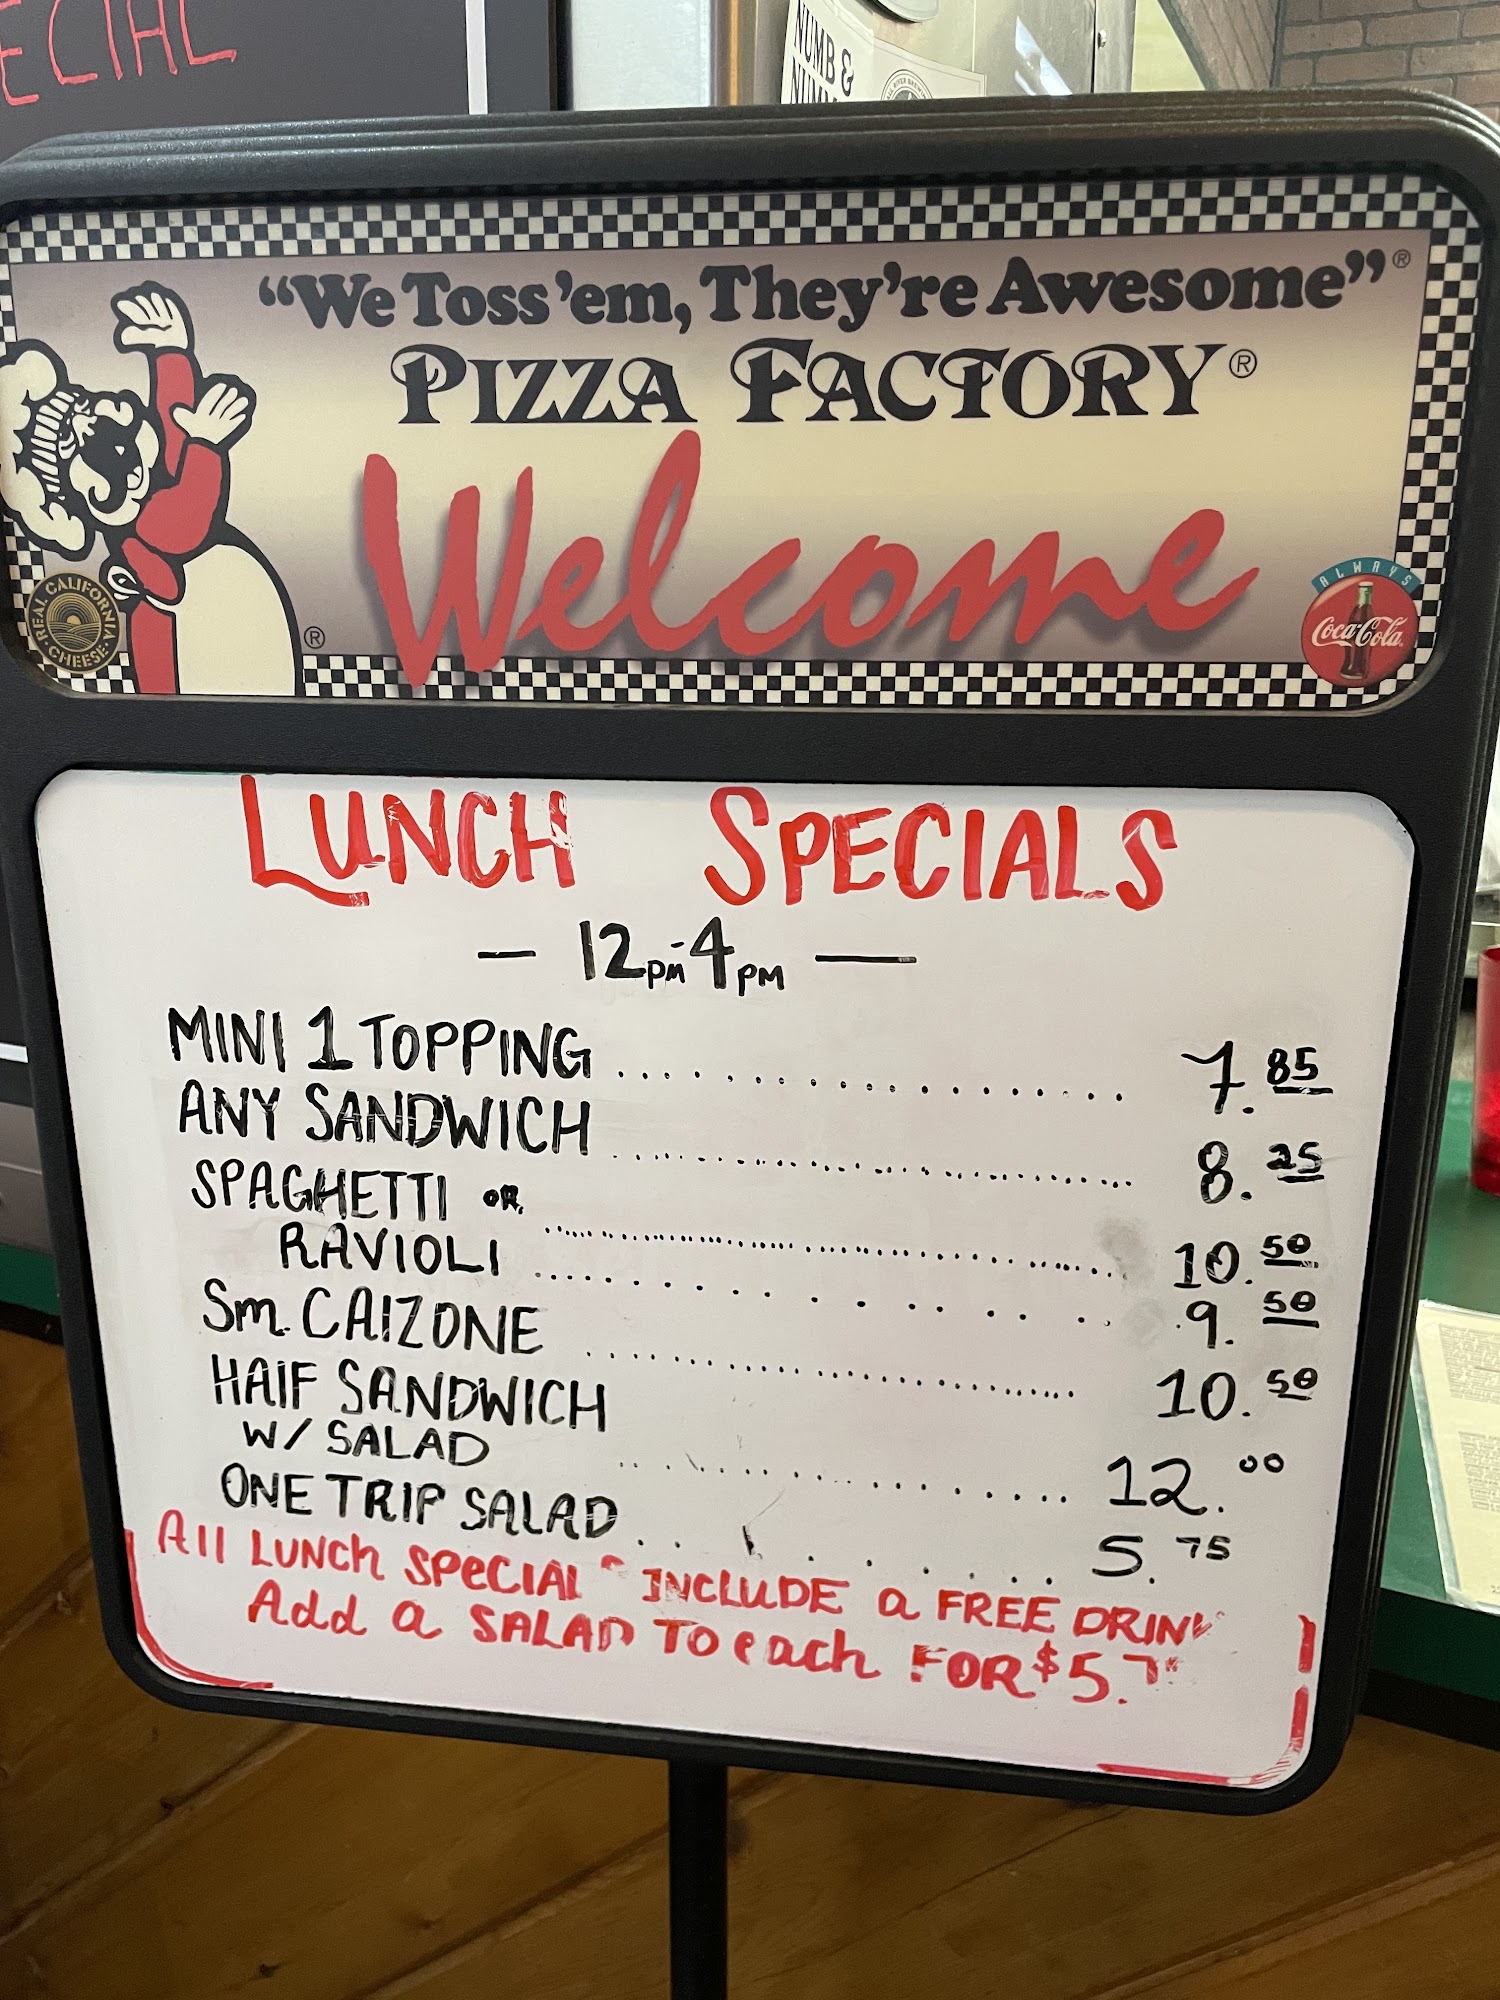 ECIAL
NUMB &
"We Toss 'em, They're Awesome"®
PIZZA FACTORY®
Welcome
REAL CALIFORNIA CHEESE
®
ALWAYS
Coca-Cola
LUNCH SPECIALS
— 12pm-4pm —
MINI 1 TOPPING .................... 7.85
ANY SANDWICH .................... 8.25
SPAGHETTI OR .................... 10.50
RAVIOLI .................... 9.50
Sm. CAlZONE .................... 10.50
HAlF SANDWICH
W/ SALAD .................... 12.00
ONE TRIP SALAD .......... 5.75
All LUNCh SPeCIAl INCLUDE a FREE DRINK
Add a SALAD TO each FOR $5.7